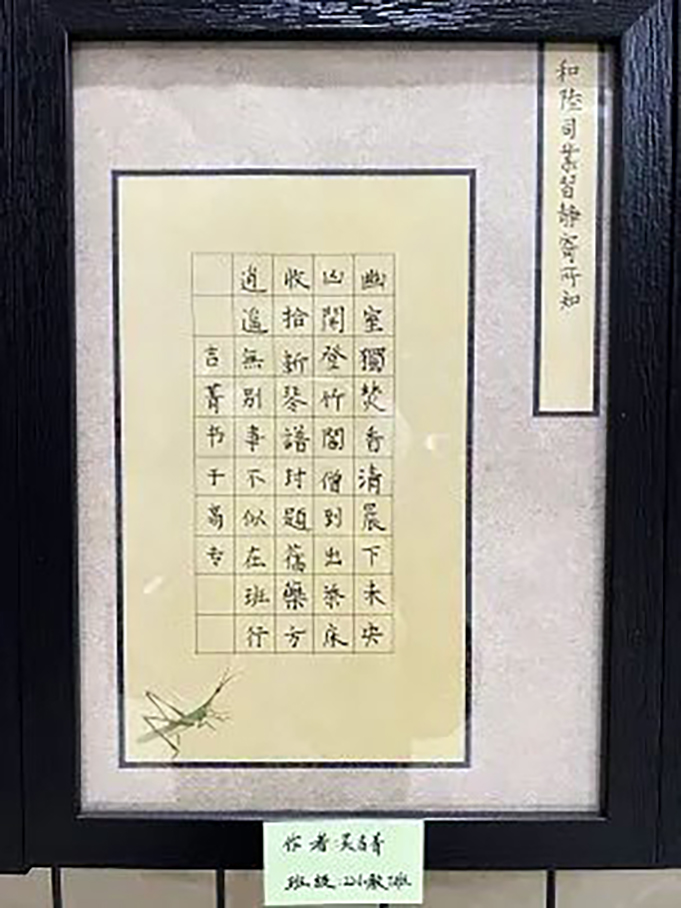 和陸司業習靜寄所知
幽室獨焚香清晨下未央
山開登竹閣僧到出茶床
收拾新琴譜封題舊藥方
逍遙無別事不似在班行
吉菁书于高专
作者:吴吉菁
班级: